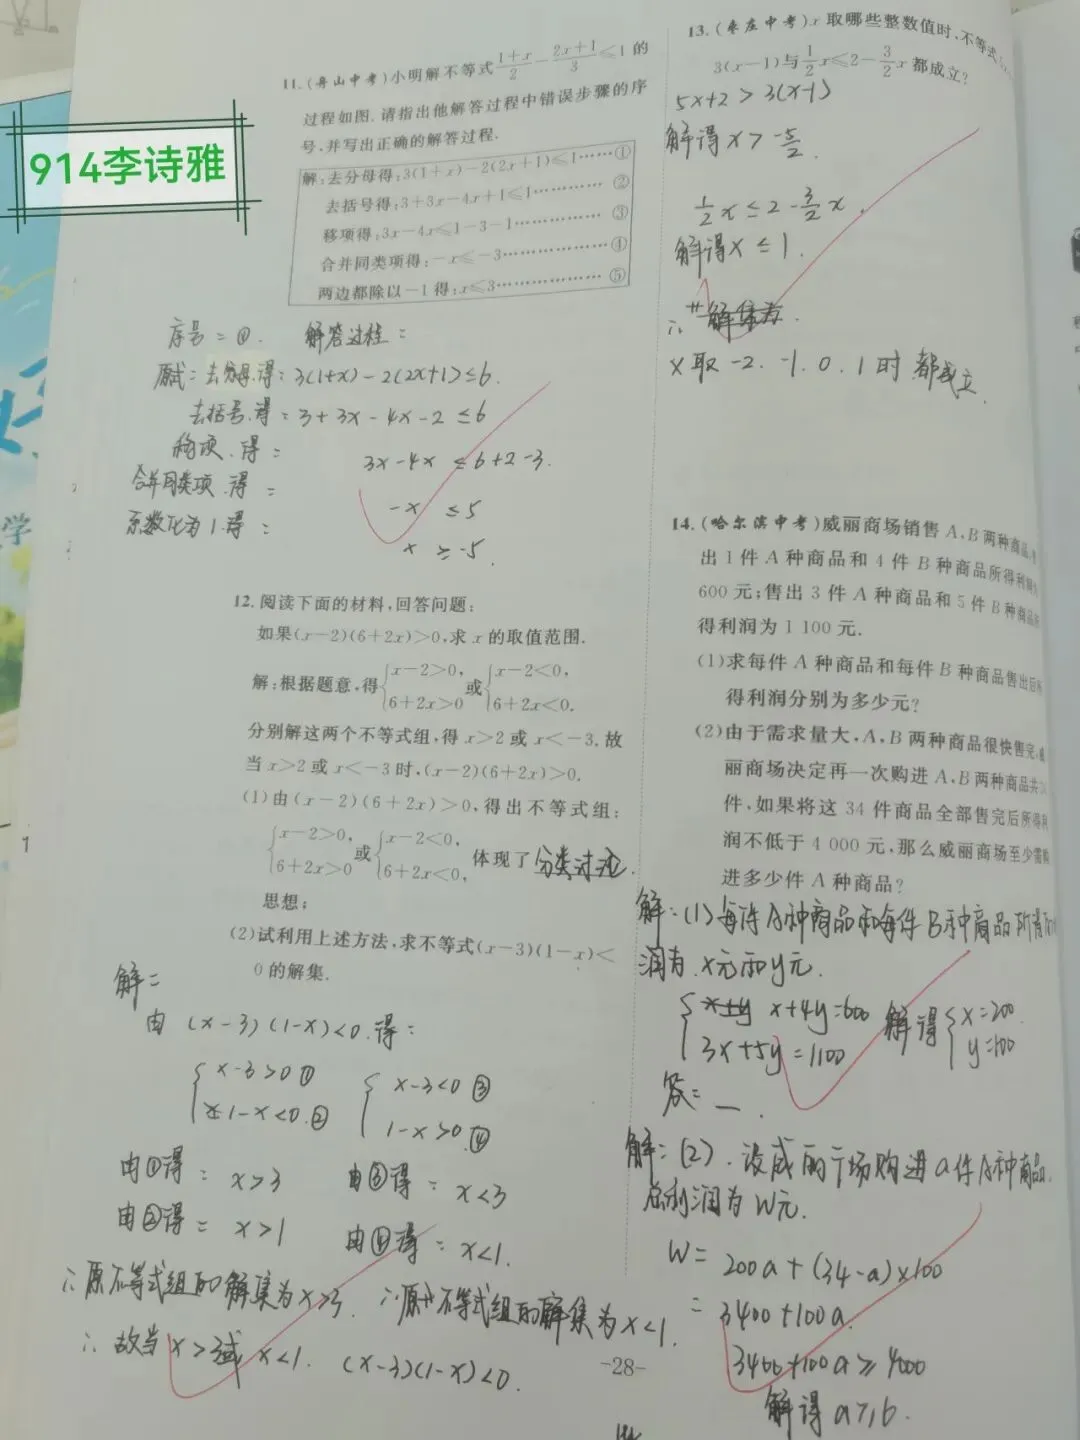 914李诗雅
11.(舟山中考)小明解不等式\frac{1+x}{2}-\frac{2x+1}{3}≤1的
过程如图.请指出他解答过程中错误步骤的序
号,并写出正确的解答过程.
解:去分母得:3(1+x)-2(2x+1)≤1……①
去括号得:3+3x-4x+1≤1…………②
移项得:3x-4x≤1-3-1……………③
合并同类项得:-x≤-3………………④
两边都除以-1得:x≤3………………⑤
解答过程:
原式:去分母.得:3(1+x)-2(2x+1)≤6.
去括号.得:3+3x-4x-2≤6
移项.得:3x-4x≤6+2-3.
合并同类项.得:-x≤5
系数化为1.得:x≥-5.
12.阅读下面的材料,回答问题:
如果(x-2)(6+2x)>0,求x的取值范围.
解:根据题意,得{x-2>0, 6+2x>0 或{x-2<0, 6+2x<0.
分别解这两个不等式组,得x>2或x<-3.故
当x>2或x<-3时,(x-2)(6+2x)>0.
(1)由(x-2)(6+2x)>0,得出不等式组:
{x-2>0, 6+2x>0 或{x-2<0, 6+2x<0, 体现了分类讨论.
思想;
(2)试利用上述方法,求不等式(x-3)(1-x)<
0的解集.
解:
由(x-3)(1-x)<0.得:
{x-3>0① {x-3<0③
1-x<0.② 1-x>0.④
由①得:x>3 由③得:x<3
由②得:x>1 由④得:x<1.
∴原不等式组的解集为x>3. ∴原不等式组的解集为x<1.
∴故当x>3或x<1.(x-3)(1-x)<0.
-28-
13.(枣庄中考)x取哪些整数值时,不等式
3(x-1)与\frac{1}{2}x≤2-\frac{3}{2}x都成立?
5x+2>3(x-1)
解得x>-\frac{5}{2}.
\frac{1}{2}x≤2-\frac{3}{2}x.
解得x≤1.
∴解集为.
x取-2.-1.0.1时都成立.
14.(哈尔滨中考)威丽商场销售A,B两种商品,
出1件A种商品和4件B种商品所得利润
600元;售出3件A种商品和5件B种商品
得利润为1 100元.
(1)求每件A种商品和每件B种商品售出后所
得利润分别为多少元?
(2)由于需求量大,A,B两种商品很快售完,威
丽商场决定再一次购进A,B两种商品共
件,如果将这34件商品全部售完后所得利
润不低于4 000元,那么威丽商场至少需购
进多少件A种商品?
解:(1)每件A种商品和每件B种商品所得
润为.x元和y元.
{x+y x+4y=600 解得{x=200.
3x+5y=1100 y=100
答:—.
解:(2).设威丽市场购进a件A种商品.
总利润为W元.
W=200a+(34-a)×100
=3400+100a.
3400+100a≥4000
解得a≥6.